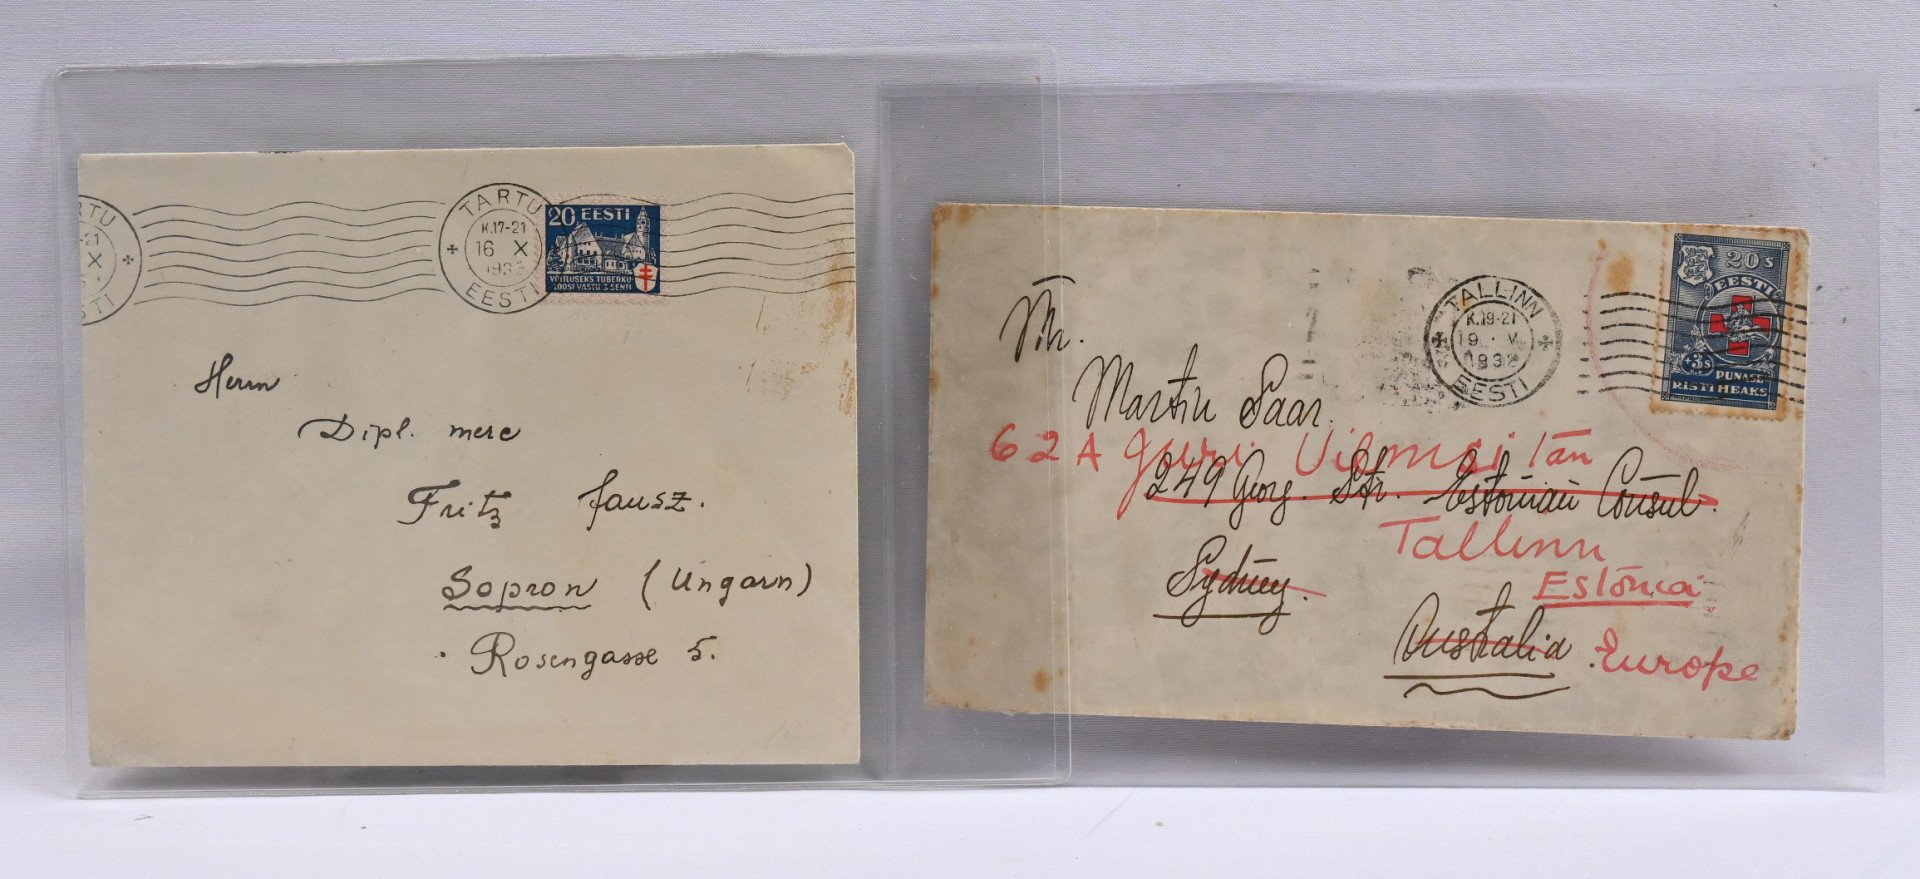 TARTU
K.17-21
16 X
EESTI
20 EESTI
VÕITLUSEKS TUBERKU-
LOOSI VASTU 3 SENTI
Herrn
Dipl. merc
Fritz Jausz.
Sopron (Ungarn)
Rosengasse 5.
TALLINN
K.19-21
19. V
1932
EESTI
20s
EESTI
+3s PUNASE
RISTI HEAKS
Mr.
Martin Saar.
62A Jüri Vilmsi tän
249 Georg. Str. Estonian Consul.
Tallinn
Sydney.
Estonia.
Australia.
Europe